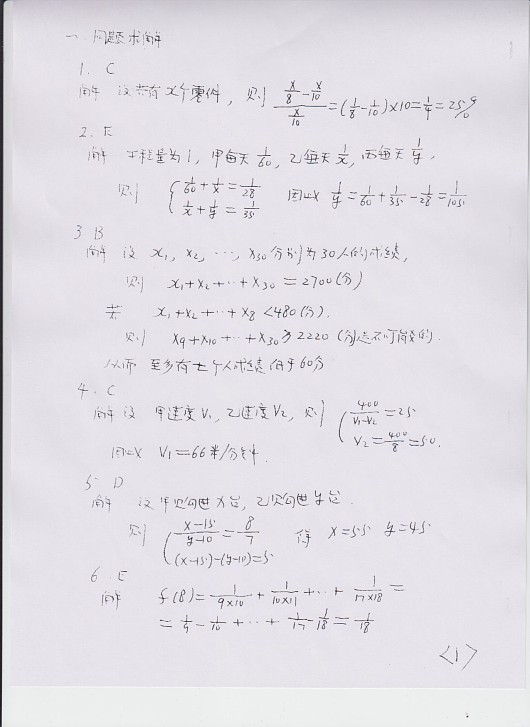 一、问题求解
1. C
解 设共有x个零件, 则 (x/8 - x/10)/(x/10) = (1/8 - 1/10)×10 = 1/4 = 25%
2. E
解 工程量为1, 甲每天 1/60, 乙每天 1/x, 丙每天 1/y,
则 { 1/60 + 1/x = 1/28
1/x + 1/y = 1/35 因此 1/y = 1/60 + 1/35 - 1/28 = 1/105
3 B
解 设 x1, x2, ···, x30 分别为30人的成绩,
则 x1+x2+···+x30 = 2700(分)
若 x1+x2+···+x8 <480(分).
则 x9+x10+···+x30 > 2220 (分)这不可能的.
从而 至多有七个人成绩低于60分
4. C
解 设 甲速度V1, 乙速度V2, 则 { 400/(V1-V2) = 25
V2 = 400/8 = 50.
因此 V1 = 66米/分钟.
5. D
解 设甲购进x台, 乙购进y台.
则 { (x-15)/(y-10) = 8/7
(x-15)-(y-10)=5 得 x=55 y=45
6 E
解 f(8) = 1/(9×10) + 1/(10×11) + ··· + 1/(17×18) =
= 1/9 - 1/10 + ··· + 1/17 - 1/18 = 1/18
<1>